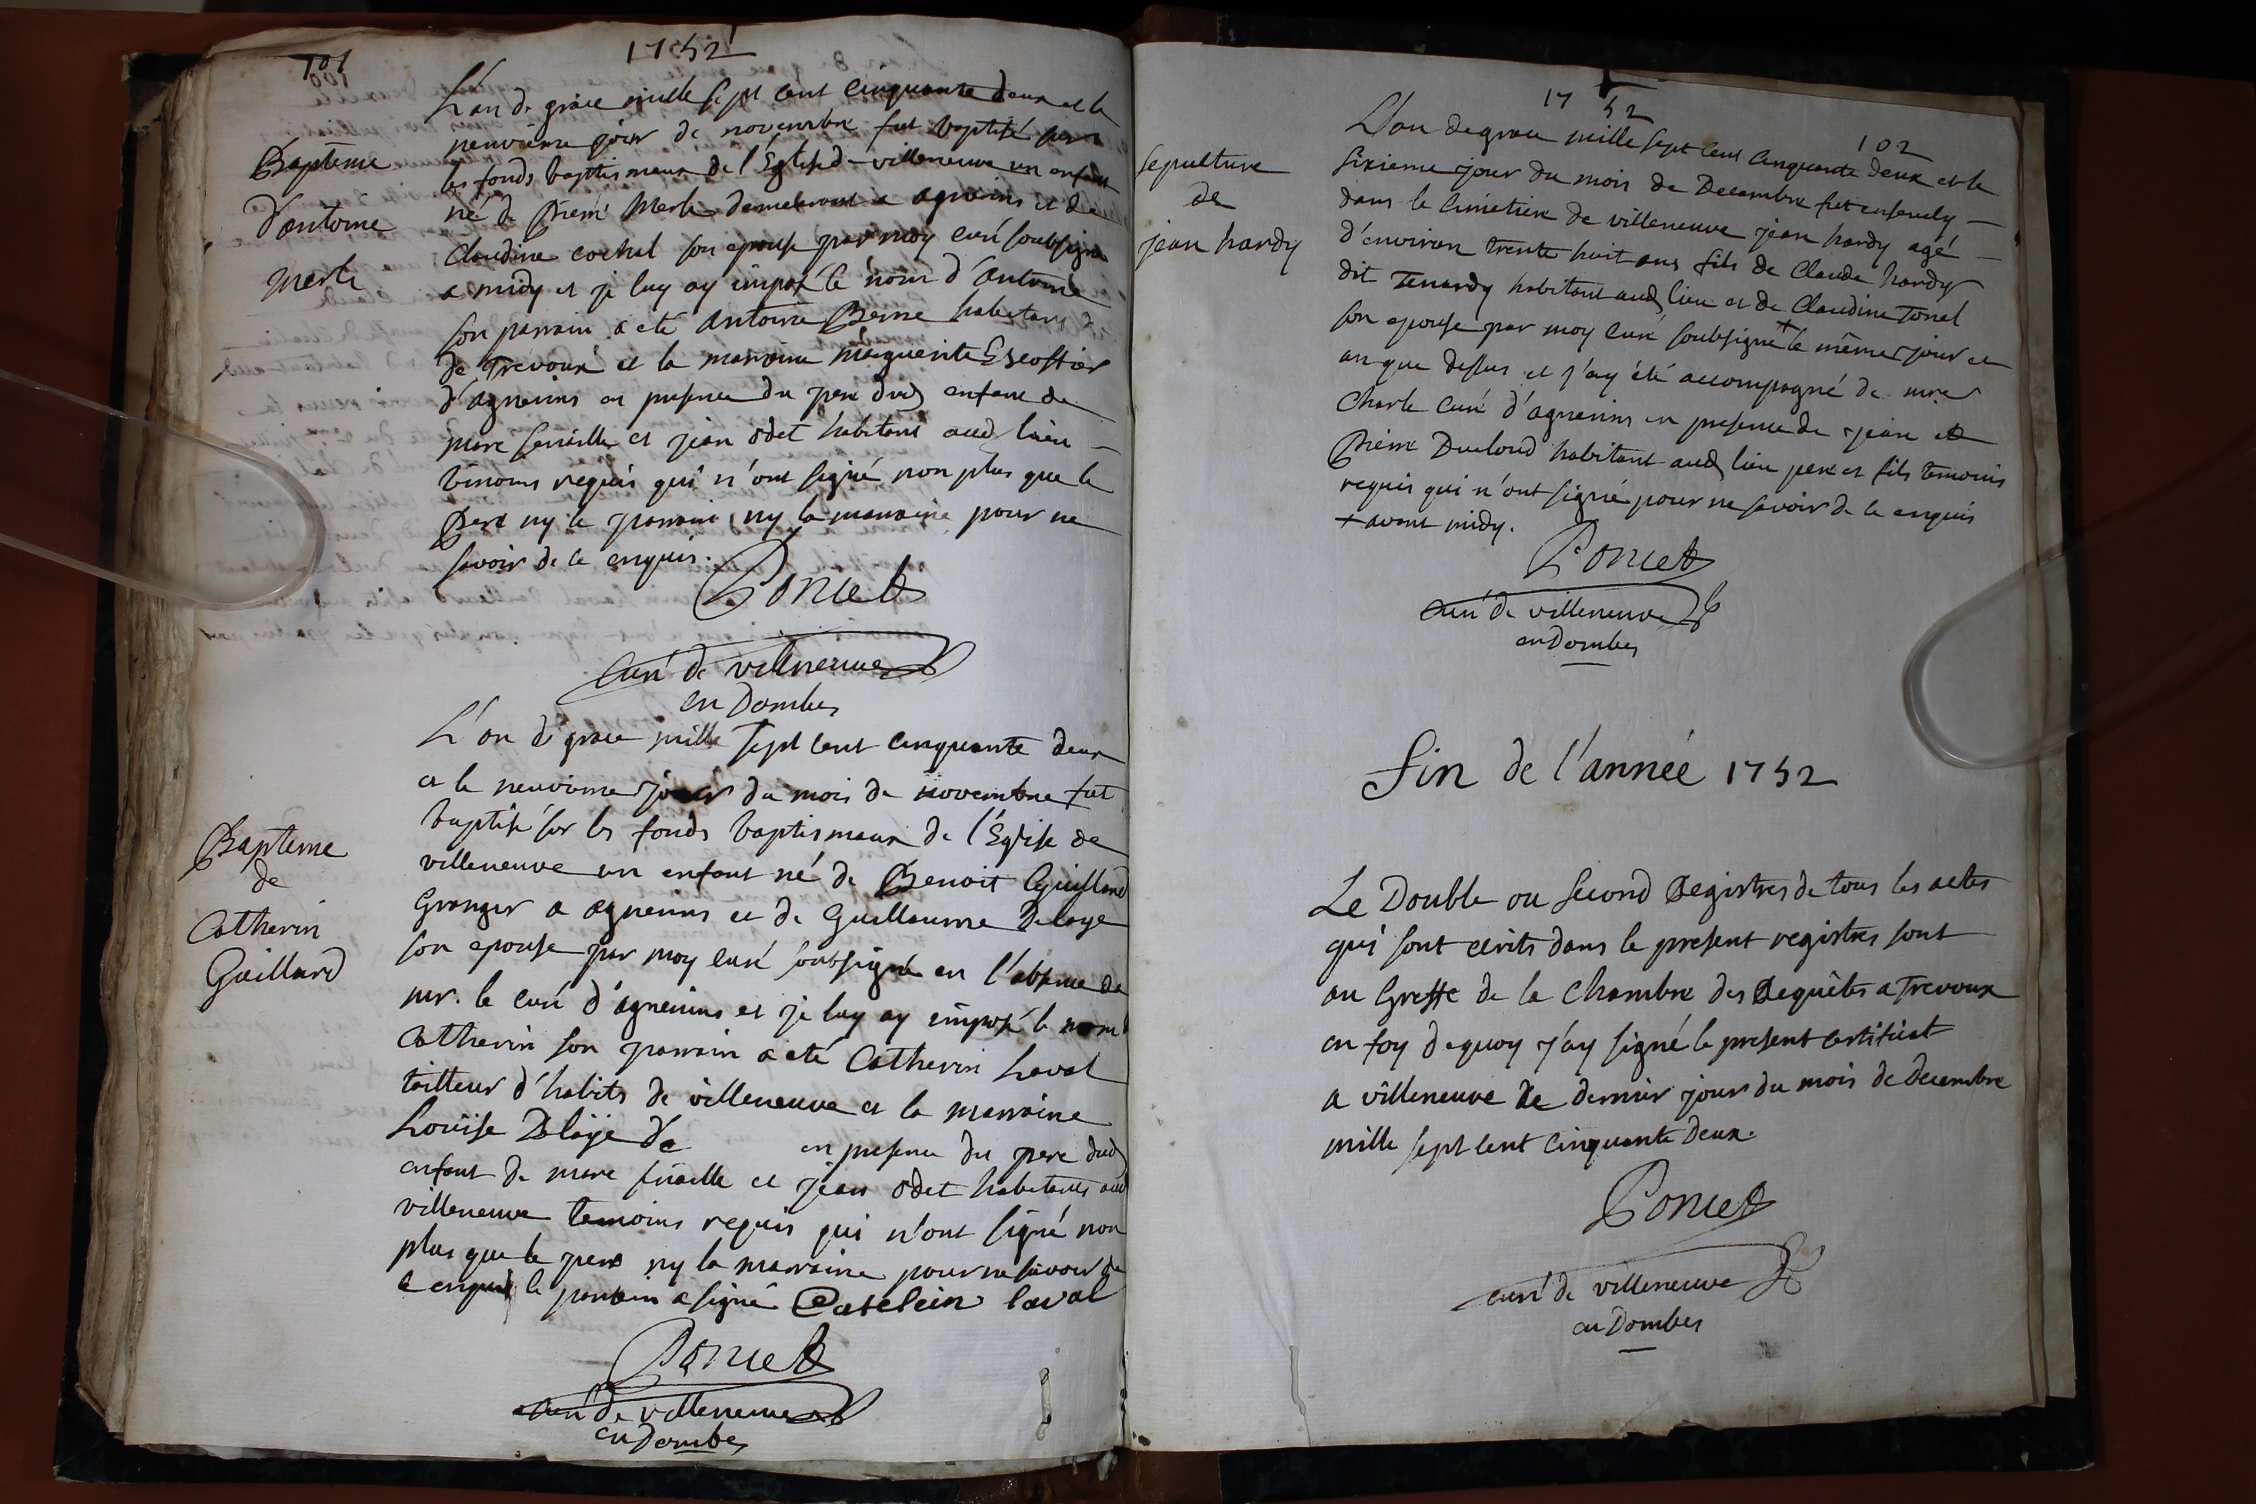 101
1752
Bapteme
d'antoine
merle
L'an de grace mille sept cent cinquante deux et le
neuvieme jour de novembre fut baptisé sur
les fonds baptismaux de l'Eglise de villeneuve un enfant
né de Pierre Merle demeurant a agnerins et de
Claudine cochal son epouse par moy curé soubsigné
a midy et je luy ay imposé le nom d'Antoine
son parrain a eté antoine Berne habitant
de Trevoux et la marraine marguerite Escoffier
d'agnerins en presence du pere dud enfant de
marc senaille et jean odet habitans aud lieu
temoins requis qui n'ont signé non plus que le
Pere ny le parrain, ny la marraine pour ne
savoir de ce enquis.
Poncet
curé de villeneuve
en Dombes
Bapteme
de
Catherin
Guillard
L'an de grace mille sept cent cinquante deux
et le neuvieme jour du mois de novembre fut
baptisé sur les fonds baptismaux de l'Eglise de
villeneuve un enfant né de Benoit Guillard
Granger a agnerins et de Guillaume Delaye
son epouse par moy curé soubsigné en l'absence de
mr. le curé d'agnerins et je luy ay imposé le nom
Catherin son parrain a eté Catherin Laval
tailleur d'habits de villeneuve et la marraine
Loüise Delaye de en presence du pere dud
enfant de marc senaille et jean odet habitans aud
villeneuve temoins requis qui n'ont signé non
plus que le pere ny la marraine pour ne savoir de
ce enquis le parrain a signé Catelein laval
Poncet
curé de villeneuve
en Dombes
1752
102
sepulture
de
jean hardy
L'an de grace mille sept cent cinquante deux et le
sixieme jour du mois de Decembre fut ensevely
dans le cimetiere de villeneuve jean hardy agé
d'environ trente huit ans fils de Claude hardy
dit Tenardy habitant aud lieu et de Claudine Tonal
son epouse par moy curé soubsigné + le même jour et
an que dessus et j'ay été accompagné de mre
Charle curé d'agnerins en presence de jean et
Pierre Ducloud habitant aud lieu pere et fils temoins
requis qui n'ont signé pour ne savoir de ce enquis
+ avant midy.
Poncet
curé de villeneuve
en Dombes
fin de l'année 1752
Le Double ou Second Registres de tous les actes
qui sont ecrits dans le present registres sont
au Greffe de la Chambre des Requêtes a Trevoux
en foy de quoy j'ay signé le present certificat
a villeneuve le dernier jour du mois de decembre
mille sept cent cinquante Deux.
Poncet
curé de villeneuve
en Dombes